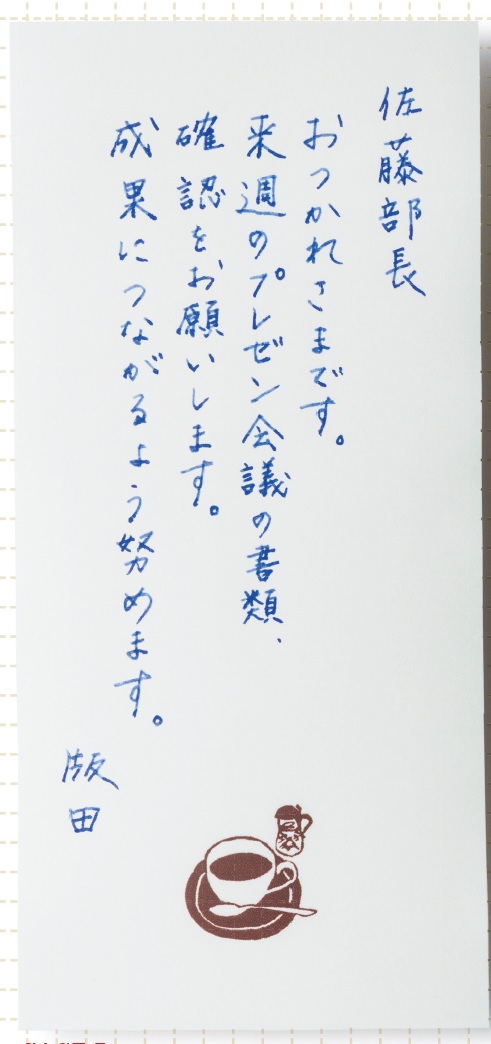 佐藤部長
おつかれさまです。
来週のプレゼン会議の書類、
確認をお願いします。
成果につながるよう努めます。
版田